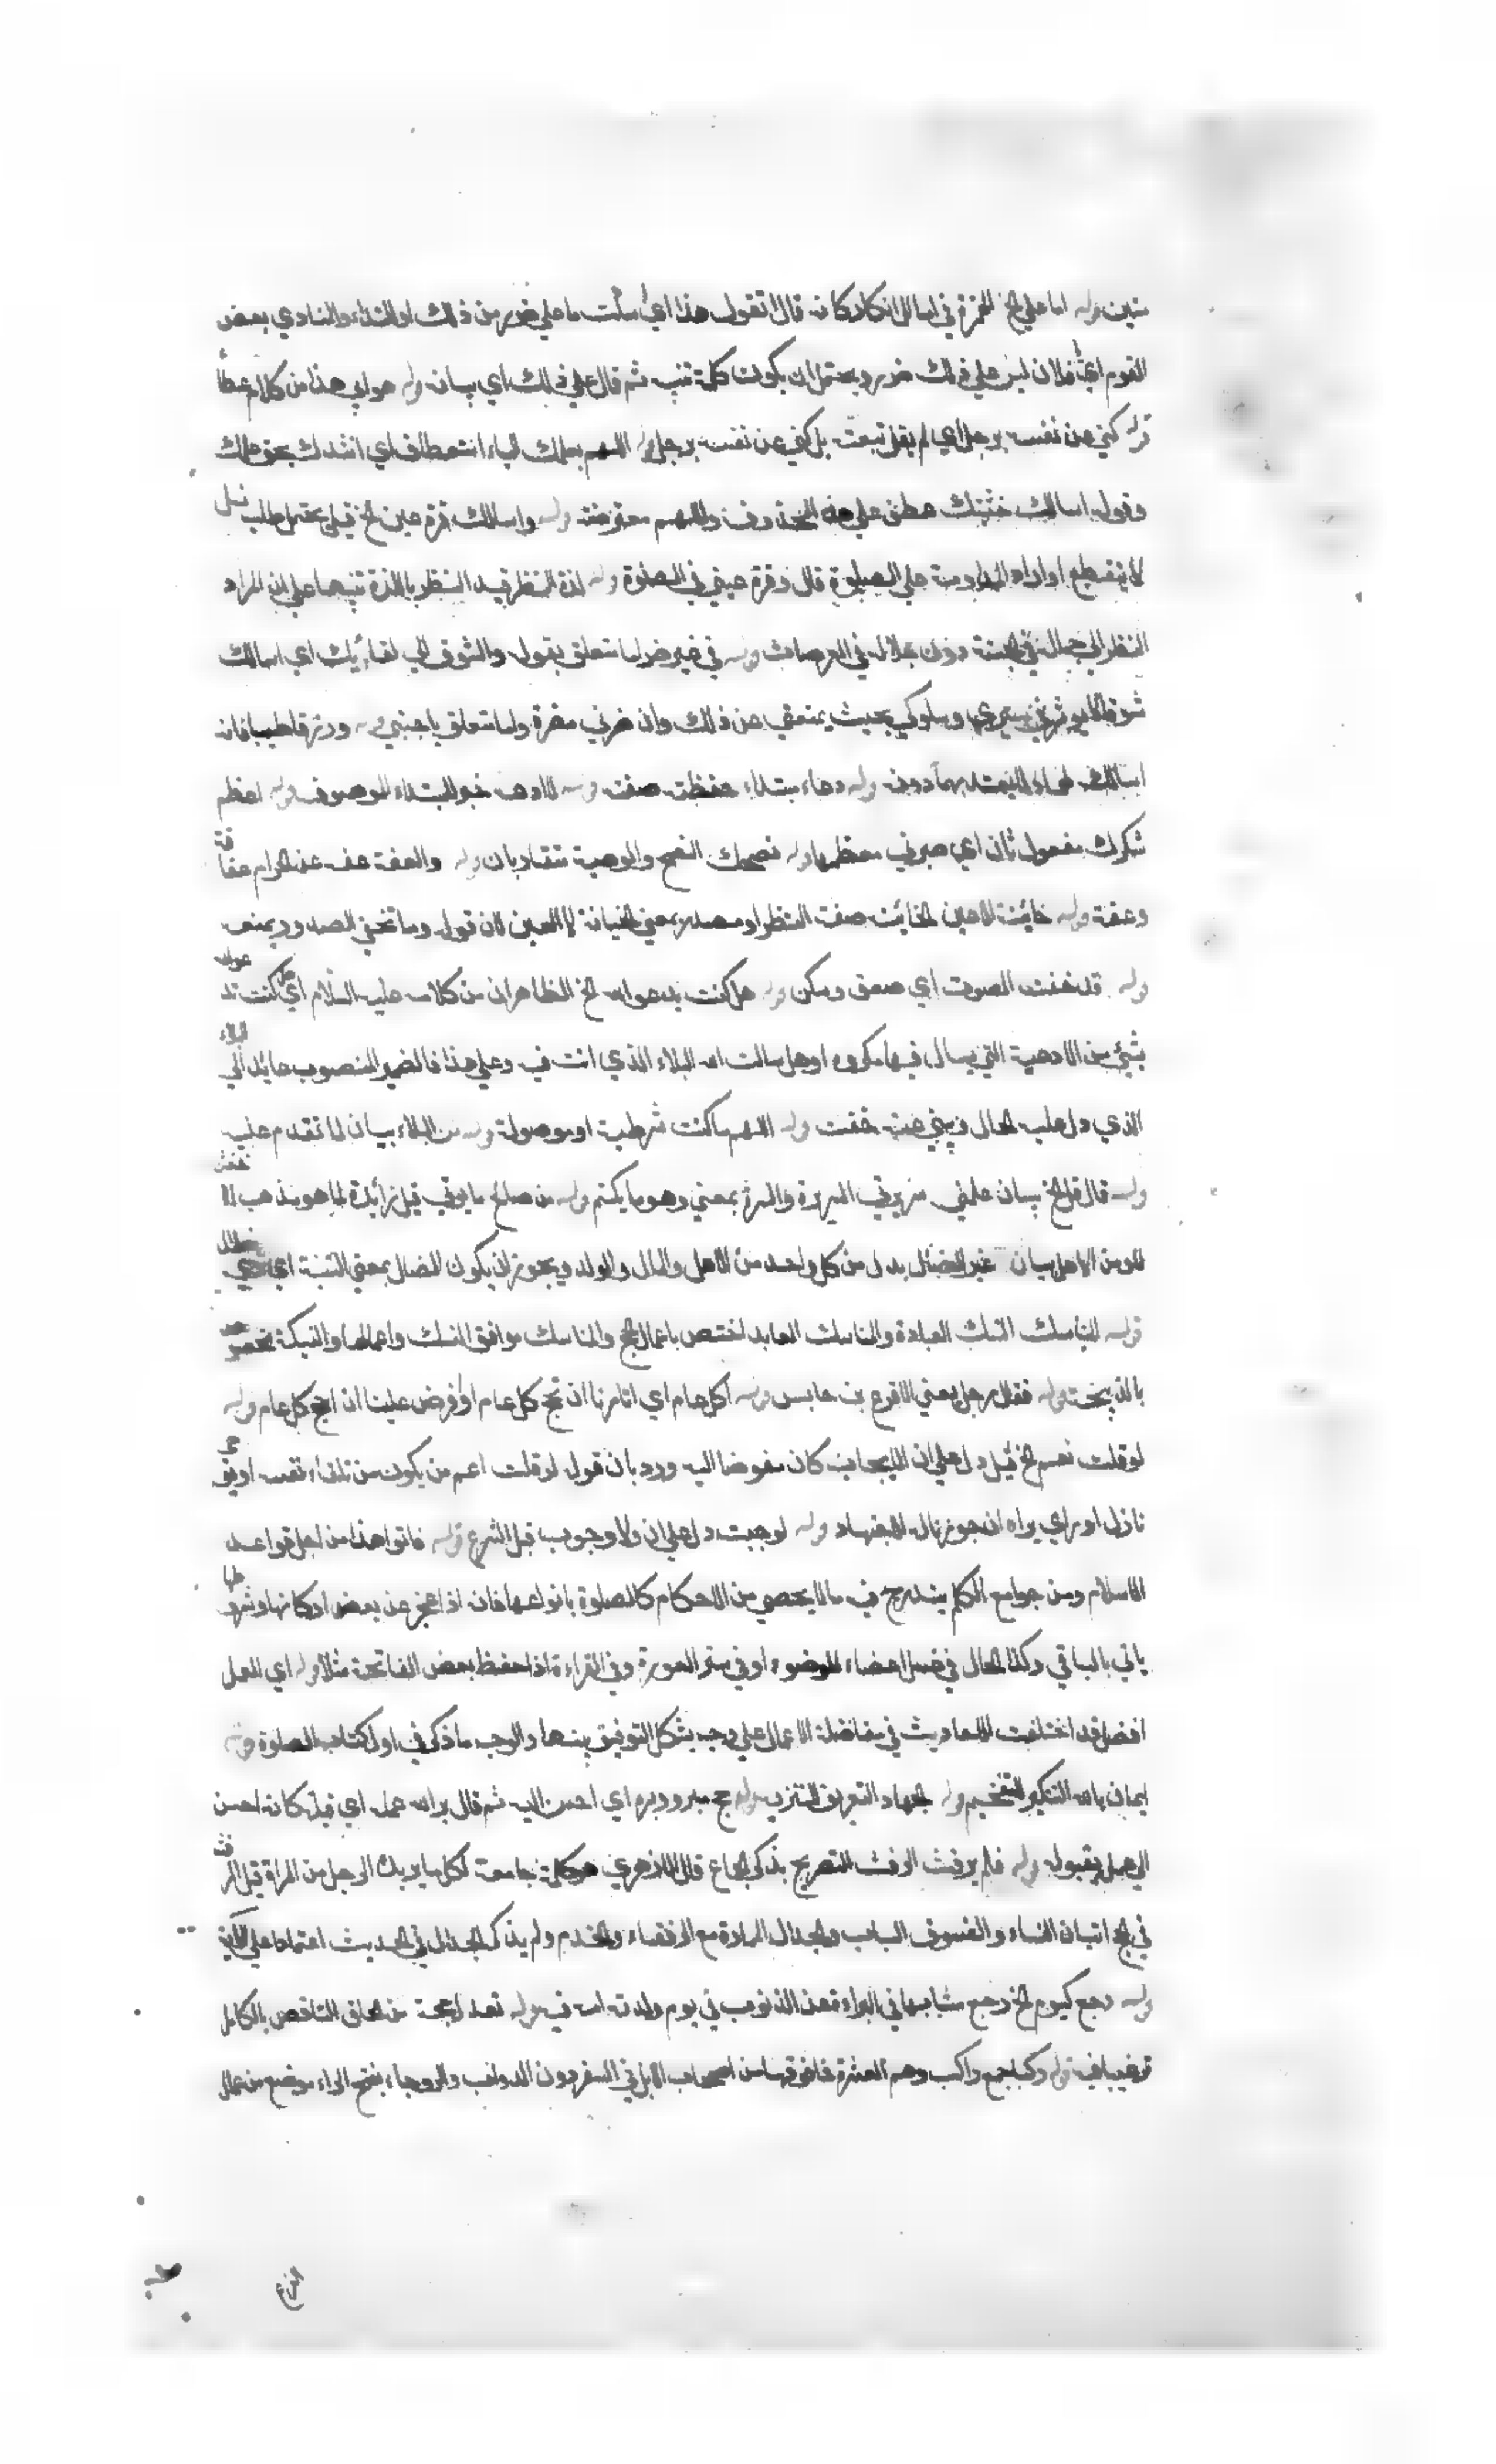 منين قوله اما علي الخ الهمزة في اما للانكار كانه قال اتقول هذا اي أسكت ما علي ضرر من ذلك او للنداء والمنادي بعض
القوم اي يا فلان ليس علي في ذلك ضرر ويحتمل ان يكون كلمة تنبيه ثم قال علي في ذلك اي بيانه قوله هو ابي هذا من كلام عطاء
قوله كني عن نفسه برجل اي لم يقل تبعته بل كني عن نفسه برجل قوله اللهم بعلمك الباء للاستعطاف اي انشدك بحق علمك
وقوله اسالك خشيتك عطف علي هذا المحذوف واللهم معترضة قوله واسالك قرة عين الخ قيل يحتمل طلب نسل
لا ينقطع او اراد المداومة علي الصلوة قال وقرة عيني في الصلوة قوله لذة النظر قيد النظر باللذة تنبيها علي ان المراد
النظر الي جماله في الجنة دون جلاله في العرصات قوله في غير ضراء متعلق بقوله والشوق الي لقائك اي اسالك
شوقا لا يوثر في سيري وسلوكي بحيث يمنعني عن ذلك وان ضرني مضرة واما متعلق باحيني قوله ورزقا طيبا فانه
اساس لهما ولا يعتد بهما دونه قوله دعاء مبتداء حفظته صفته قوله لا ادعه خبر المبتداء الموصوف قوله اعظم
شكرك مفعول ثان اي صيرني معظما قوله نصحك النصح والوصية متقاربان قوله والعفة عف عن الحرام عفافة
وعفة قوله خائنة الاعين الخائنة صفة النظر او مصدر بمعني الخيانة لا العين لان قوله وما تخفي الصدور يمنعه
قوله قد خفت الصوت اي ضعف وسكن قوله هل كنت يدعوا الله الخ الظاهر انه من كلامه عليه السلام اي هل كنت تدعو الله
بشيء من الادعية التي يسال فيها مكروه او هل سالت الله البلاء الذي انت فيه وعلي هذا فالضمير المنصوب عائد الي البلاء
الذي دل عليه الحال وينبي عنه خفت قوله اللهم ما كنت شرطية او موصولة قوله من البلاء بيان لما تقدم عليه
قوله قال قل الخ بيان علمني سريرتي السريرة والسر بمعني وهو ما يكتم قوله من صالح ما يوتي قيل زائدة كما هو مذهب الاخفش
قوله من الاهل بيان غير الضال بدل من كل واحد من الاهل والمال والولد ويجوز ان يكون الضال بمعني النسبة اي ذي ضلال
قوله المناسك النسك العبادة والناسك العابد اختص باعمال الحج والمناسك مواقف النسك واعمالها والنسيكة مختصة
بالذبيحة قوله فقال رجل يعني الاقرع بن حابس قوله أكل عام اي اتامرنا ان نحج كل عام او فرض علينا ان نحج كل عام قوله
لو قلت نعم الخ قيل دل علي ان الايجاب كان مفوضا اليه ورد بان قوله لو قلت اعم من يكون من تلقاء نفسه او بوحي
نازل او براي يراه ان جوزنا له الاجتهاد قوله لوجبت دل علي ان لا وجوب قبل الشرع قوله فاتوا هذا من اجل قواعد
الاسلام ومن جوامع الكلم يندرج فيه ما لا يحصي من الاحكام كالصلوة بانواعها فانه اذا عجز عن بعض اركانها وشرطها
ياتي بالباقي وكذا الحال في غسل اعضاء الوضوء او في ستر العورة وفي القراءة اذا حفظ بعض الفاتحة مثلا قوله اي العمل
افضل قد اختلفت الاحاديث في مفاضلة الاعمال علي وجه يشكل التوفيق بينها والوجه ما ذكر في اول كتاب الصلوة قوله
ايمان بالله التنكير للتفخيم قوله الجهاد التعريف قوله حج مبرور بره اي احسن اليه ثم قال بر الله عمله اي قبله كانه احسن
الي عمله بقبوله قوله فلم يرفث الرفث التصريح بذكر الجماع قال الازهري هو كلمة جامعة لكل ما يريد الرجل من المراة قيل الرفث
في الحج اتيان النساء والفسوق السباب والجدال المماراة مع الرفقاء والخدم ولم يذكر الجدال في الحديث اعتمادا علي الآية
قوله رجع كيوم الخ رجع مشابها في البراءة عن الذنوب في يوم ولدته امه فيه قوله تعدل حجة من الحاق الناقص بالكامل
ترغيبا فيه قوله ركبا جمع راكب وهم العشرة فما فوقها من اصحاب الابل في السفر دون الدواب والروحاء بفتح الراء موضع من عمال